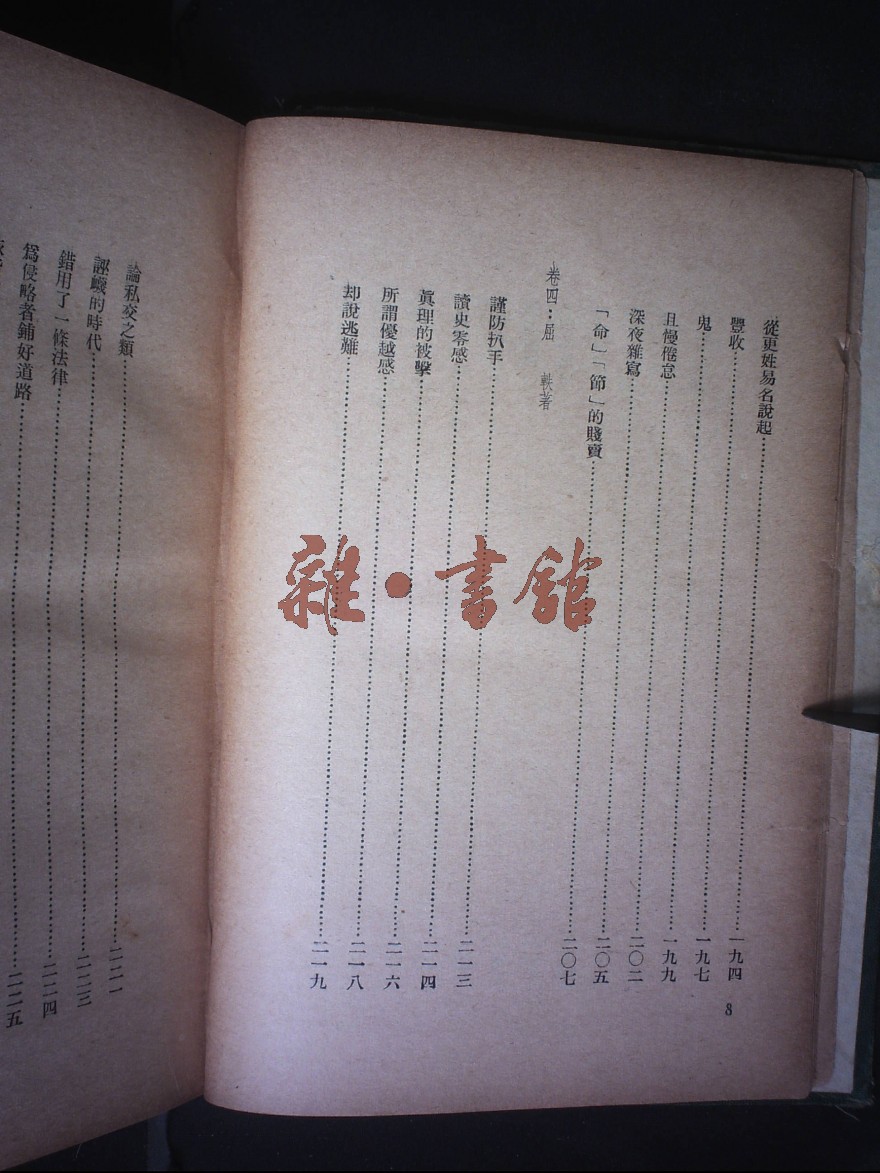 從更姓易名說起……一九四
豐收……一九七
鬼……一九九
且慢倦怠……二〇二
深夜雜寫……二〇五
「命」「節」的賤賣……二〇七
卷四：屈　軼著
謹防扒手……二一三
讀史零感……二一四
眞理的被擊……二一六
所謂優越感……二一八
却說逃難……二一九
8
論私交之類……二二一
誣衊的時代……二二三
錯用了一條法律……二二四
爲侵略者鋪好道路……二二五
雜•書館